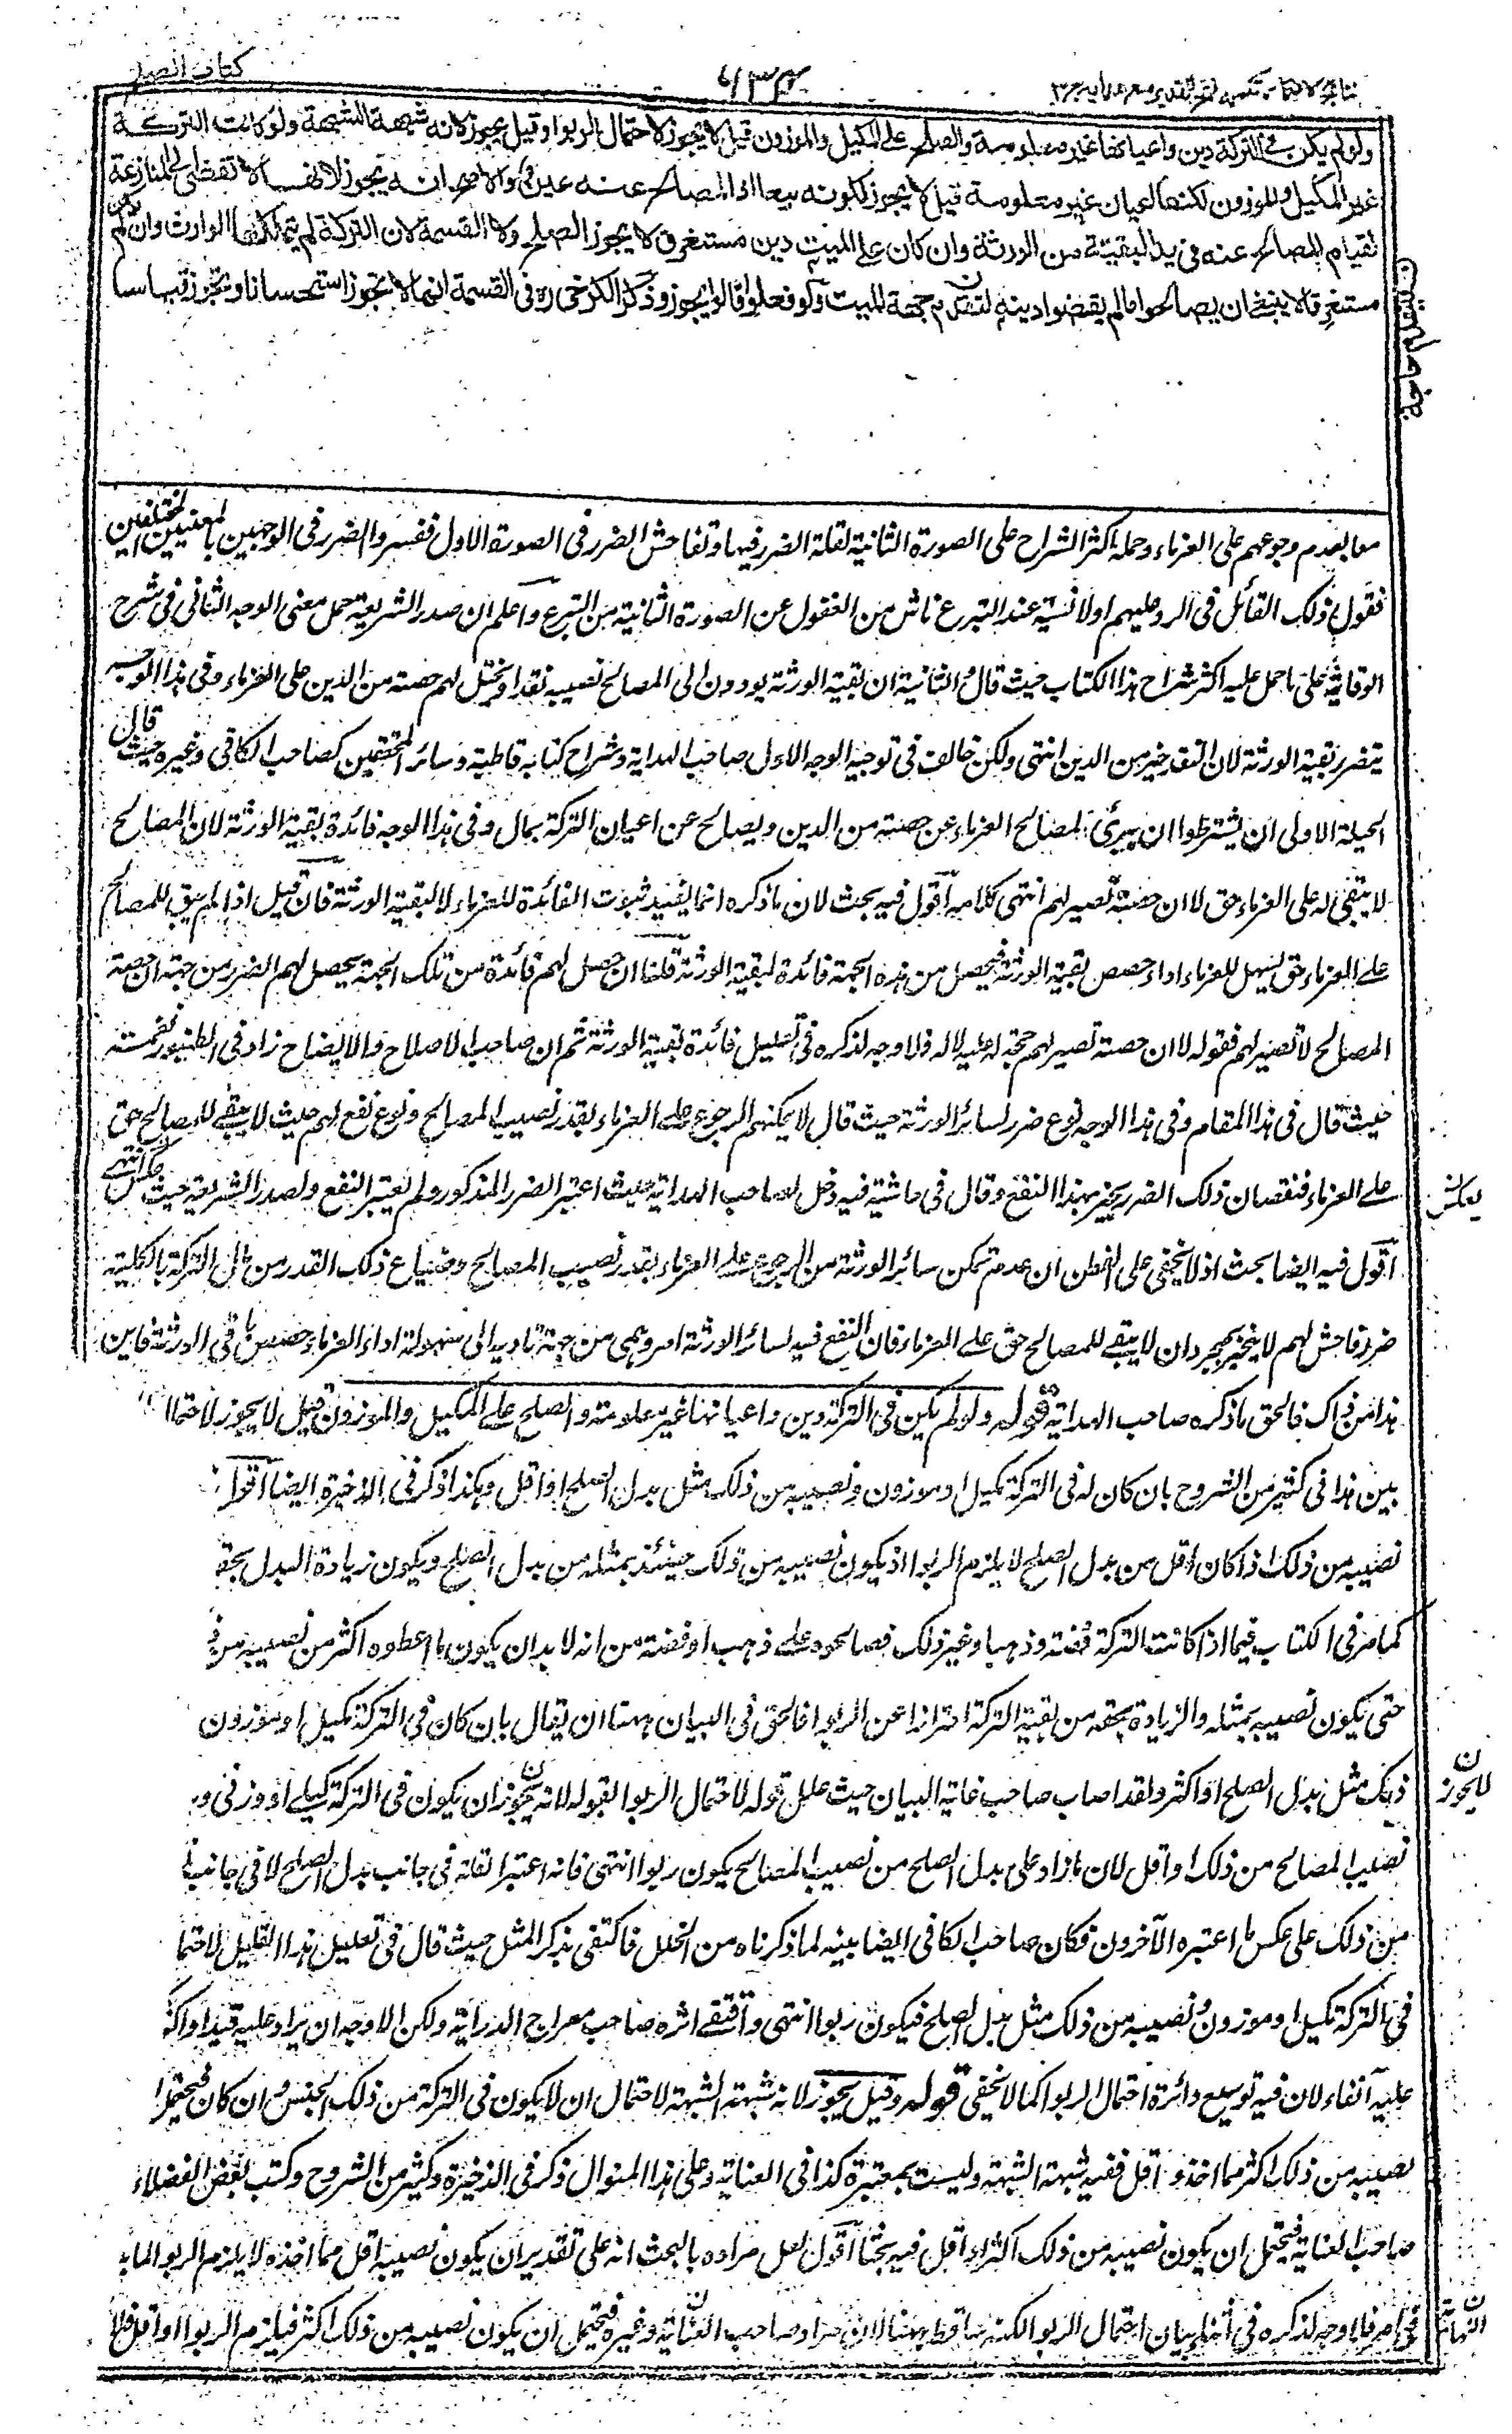 كتاب الصلح
ولو لم يكن في التركة دين واعيانها غير معلومة والصلح على المكيل والموزون قيل لا يجوز لاحتمال الربوا وقيل يجوز لانه شبهة الشبهة ولو كانت التركة
غير المكيل والموزون لكنها اعيان غير معلومة قيل لا يجوز لكونه بيعا اذ المصالح عنه عين والاصح انه يجوز لانها لا تفضي الى المنازعة
لقيام المصالح عنه في يد البقية من الورثة وان كان على الميت دين مستغرق لا يجوز الصلح ولا القسمة لان التركة لم يتملكها الوارث وان لم يكن
مستغرقا لا ينبغي ان يصالحوا ما لم يقضوا دينه لتقدم حاجة الميت ولو فعلوا قالوا يجوز وذكر الكرخي ره في القسمة انها لا تجوز استحسانا وتجوز قياسا
معا بعدم رجوعهم على الغرماء وحمله اكثر الشراح على الصورة الثانية لقلة الضرر فيها وتفاحش الضرر في الصورة الاولى ففسروا الضرر في الوجهين بالمعنيين المختلفين
فقول ذلك القائل في الرد عليهم اولا نسية عند التبرع ناش من الغفول عن الصورة الثانية من التبرع واعلم ان صدر الشريعة حمل معنى الوجه الثاني في شرح
الوقاية على ما حمل عليه اكثر شراح هذا الكتاب حيث قال والثانية ان بقية الورثة يودون الى المصالح نصيبه نقدا و لهم حصته من الدين على الغرماء وفي هذا الوجه
يتضرر بقية الورثة لان النقد خير من الدين انتهى ولكن خالف في توجيه الوجه الاول صاحب الهداية وشراح كتابه قاطبة وسائر المحققين كصاحب الكافي وغيره حيث قال
الحيلة الاولى ان يشترطوا ان يبرئ المصالح الغرماء عن حصته من الدين ويصالح عن اعيان التركة بمال وفي هذا الوجه فائدة لبقية الورثة لان المصالح
لا يبقى له على الغرماء حق لا ان حصته تصير لهم انتهى كلامه اقول فيه بحث لان ما ذكره انما يفيد ثبوت الفائدة للغرماء لا لبقية الورثة فان قيل اذا لم يبق للمصالح
على الغرماء حق يسهل للغرماء اداء حصص بقية الورثة فيحصل من هذه الجهة فائدة لبقية الورثة قلنا ان حصل لهم فائدة من تلك الجهة يحصل لهم الضرر من جهة ان حصة
المصالح لا تصير لهم فقوله لا ان حصته تصير لهم حجة عليه لا له فلا وجه لذكره في تعليل فائدة بقية الورثة ثم ان صاحب الاصلاح والايضاح زاد في الطنبور نغمة
حيث قال في هذا المقام وفي هذا الوجه نوع ضرر لسائر الورثة حيث قال لا يمكنهم الرجوع على الغرماء بقدر نصيب المصالح ونوع نفع لهم حيث لا يبقى للمصالح حق
على الغرماء فنقصان ذلك الضرر يجبر بهذا النفع وقال في حاشيته فيه دخل لصاحب الهداية حيث اعتبر الضرر المذكور ولم يعتبر النفع ولصدر الشريعة حيث عكس انتهى
اقول فيه ايضا بحث اذ لا يخفى على الفطن ان عدم تمكن سائر الورثة من الرجوع على الغرماء بقدر نصيب المصالح وضياع ذلك القدر من مال التركة بالكلية
ضرر فاحش لهم لا ينجبر بمجرد ان لا يبقى للمصالح حق على الغرماء فان النفع فيه لسائر الورثة امر وهمي من جهة تاديه الى سهولة اداء الغرماء حصص باقي الورثة فاين
هذا من ذاك فالحق ما ذكره صاحب الهداية قوله ولو لم يكن في التركة دين واعيانها غير معلومة والصلح على المكيل والموزون قيل لا يجوز لاحتمال
بين هذا في كثير من الشروح بان كان له في التركة مكيل او موزون ونصيبه من ذلك مثل بدل الصلح او اقل وهكذا ذكر في الذخيرة ايضا اقول
نصيبه من ذلك اذا كان اقل من بدل الصلح لا يلزم الربوا اذ يكون نصيبه من ذلك حينئذ بمثله من بدل الصلح ويكون زيادة البدل بحقه
كما مر في الكتاب فيما اذا كانت التركة فضة وذهبا وغير ذلك فصالحوه على ذهب او فضة من انه لا بد ان يكون ما اعطوه اكثر من نصيبه من
حتى يكون نصيبه بمثله والزيادة بحقه من بقية التركة احترازا عن الربوا فالحق في البيان ههنا ان يقال بان كان في التركة مكيل او موزون
ذلك مثل بدل الصلح او اكثر ولقد اصاب صاحب غاية البيان حيث علل قوله لاحتمال الربوا بقوله لانه يجوز ان يكون في التركة كيلي او وزني و
نصيب المصالح من ذلك او اقل لان ما زاد على بدل الصلح من نصيب المصالح يكون ربوا انتهى فانه اعتبر القلة في جانب بدل الصلح لا في جانب
من ذلك على عكس ما اعتبره الآخرون فكان صاحب الكافي ايضا بينه لما ذكرناه من الخلل فاكتفى بذكر المثل حيث قال في تعليل هذا القليل لاحتمال
في التركة مكيل او موزون ونصيبه من ذلك مثل بدل الصلح فيكون ربوا انتهى واقتفى اثره صاحب معراج الدراية ولكن الاوجه ان يزاد عليه قيد او اكثر
عليه آنفا لان فيه توسيع دائرة احتمال الربوا كما لا يخفى قوله وقيل يجوز لانه شبهة الشبهة لاحتمال ان لا يكون في التركة من ذلك الجنس وان كان فيحتمل
نصيبه من ذلك اكثر مما اخذ و اقل ففيه شبهة الشبهة وليست بمعتبرة كذا في العناية وعلى هذا المنوال ذكر في الذخيرة وكثير من الشروح وكتب بعض الفضلاء
صاحب العناية فيحتمل ان يكون نصيبه من ذلك اكثر او اقل فيه بحث اقول لعل مراده بالبحث انه على تقدير ان يكون نصيبه اقل مما اخذه لا يلزم الربوا
مر فلا وجه لذكره في اثناء بيان احتمال الربوا لكنه ساقط ههنا لان مراد صاحب العناية وغيره فيحتمل ان يكون نصيبه من ذلك اكثر فيلزم الربوا او اقل فلا